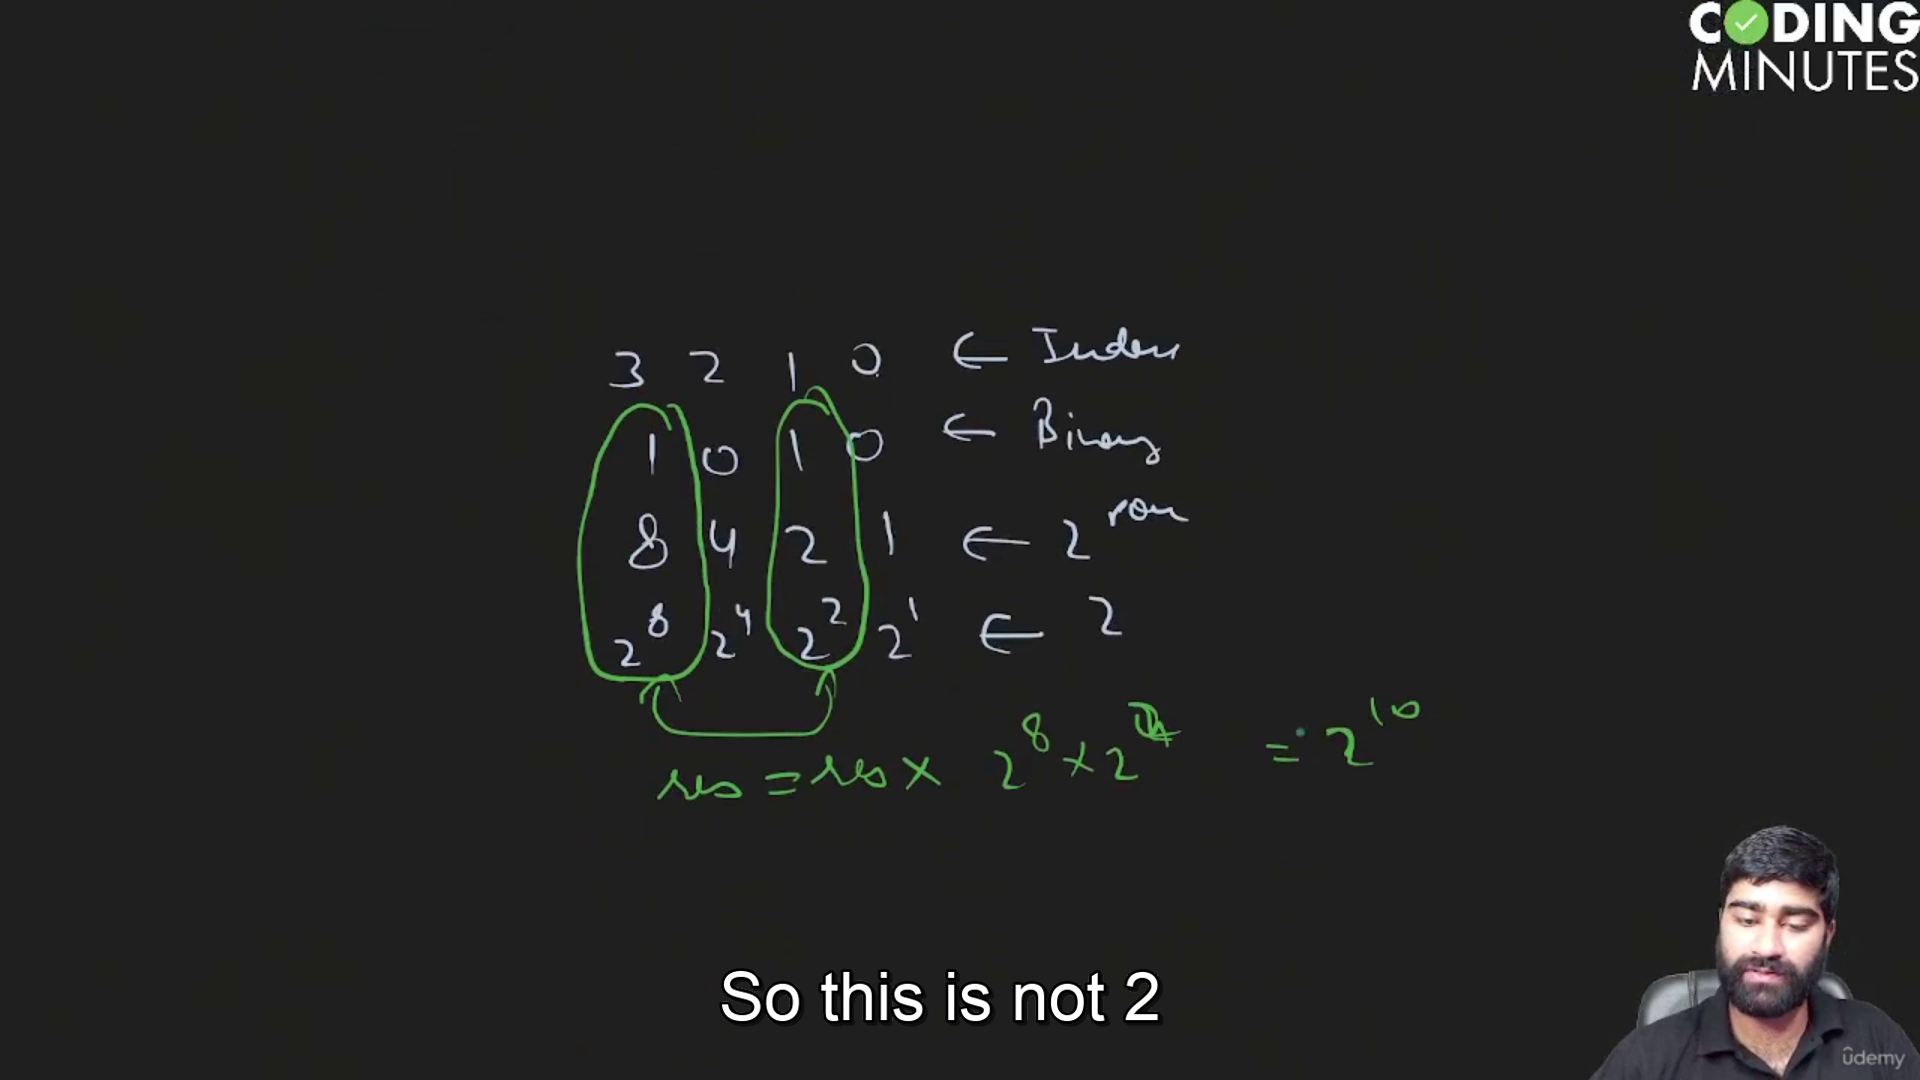 CODING
MINUTES
3 2 1 0 ← Index
1 0 1 0 ← Binary
8 4 2 1 ← 2^pow
2^8 2^4 2^2 2^1 ← 2
res = res × 2^8 × 2 = 2^10
So this is not 2
ûdemy